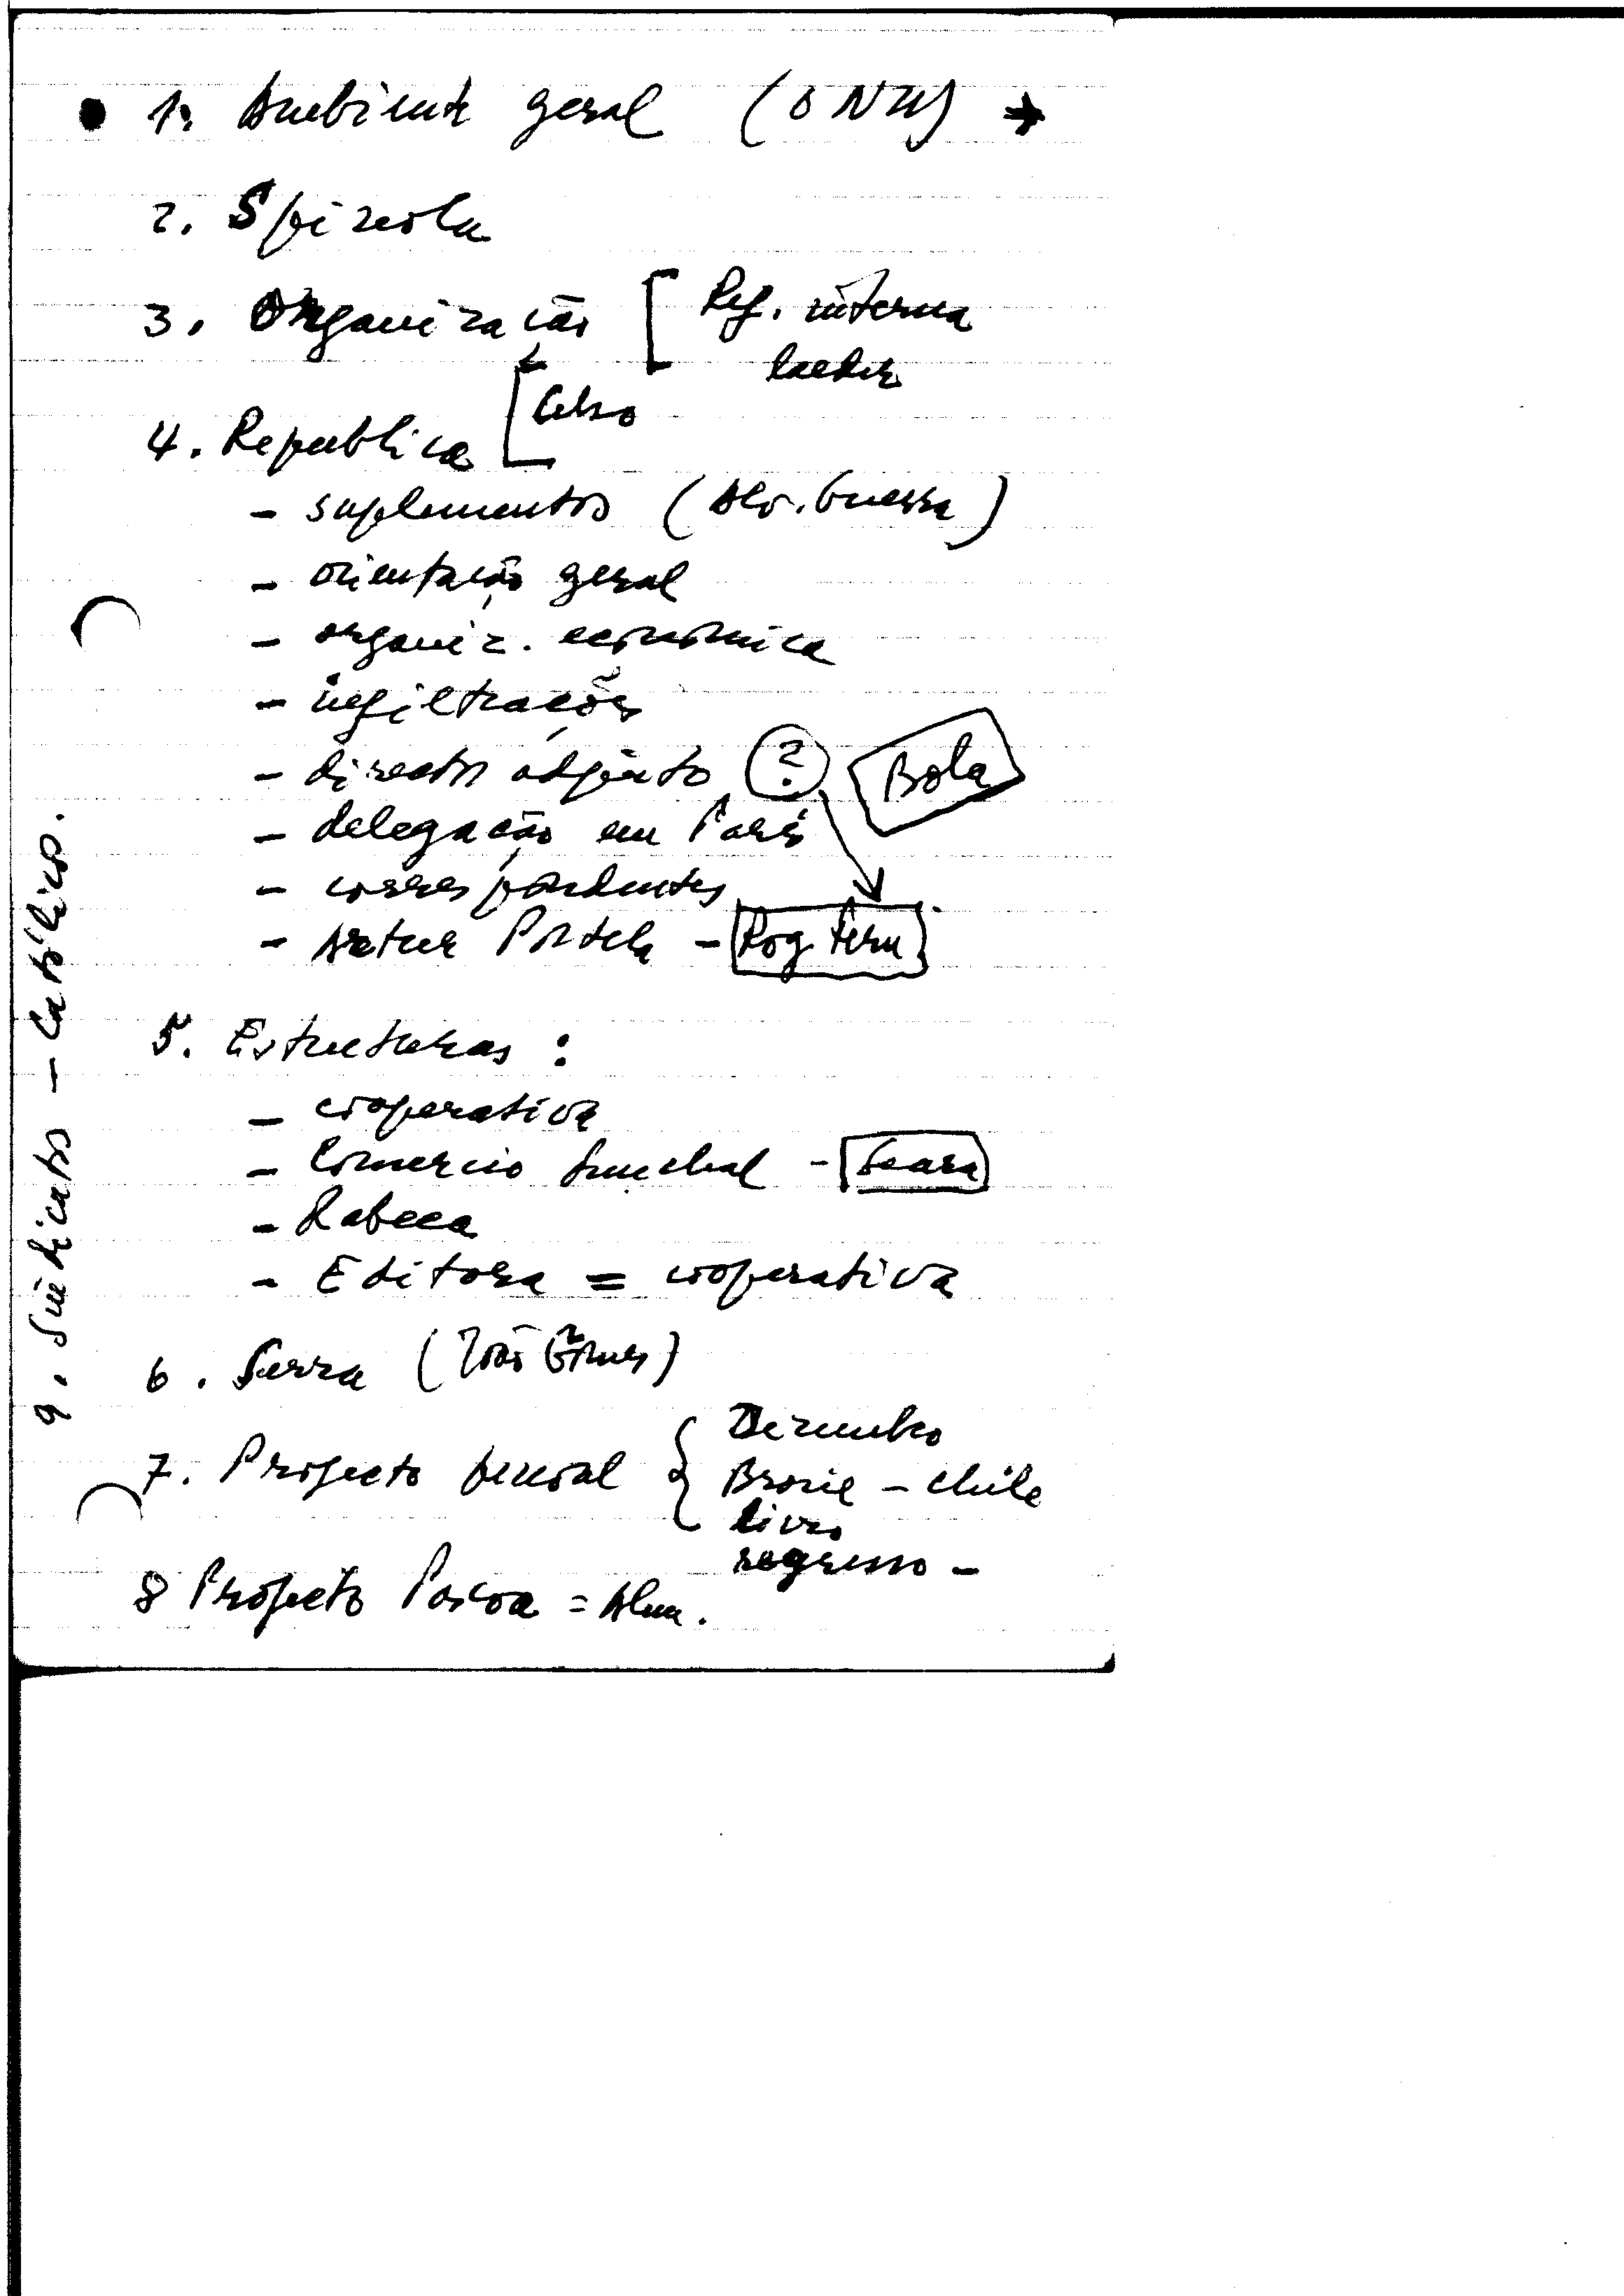 1. Ambiente geral (ONU) →
2. Spinola
3. Organização [ Ref. interna
laeder
4. Republica [ Celso
- suplementos (Alv. Guerra)
- orientação geral
- organiz. economica
- infiltrações
- director adjunto ? Bola
- delegação em Paris
- correspondentes
- Artur Portela - Rog Fern
5. Estructuras :
- cooperativa
- Comercio Funchal - Seara
- Rabeca
- Editora = cooperativa
6. Serra (João Gomes)
7. Projecto pessoal { Dezembro
Brasil - Chile
livro
regresso -
8 Projecto Pascoa = Alem.
9. Sindicatos - Católicos.